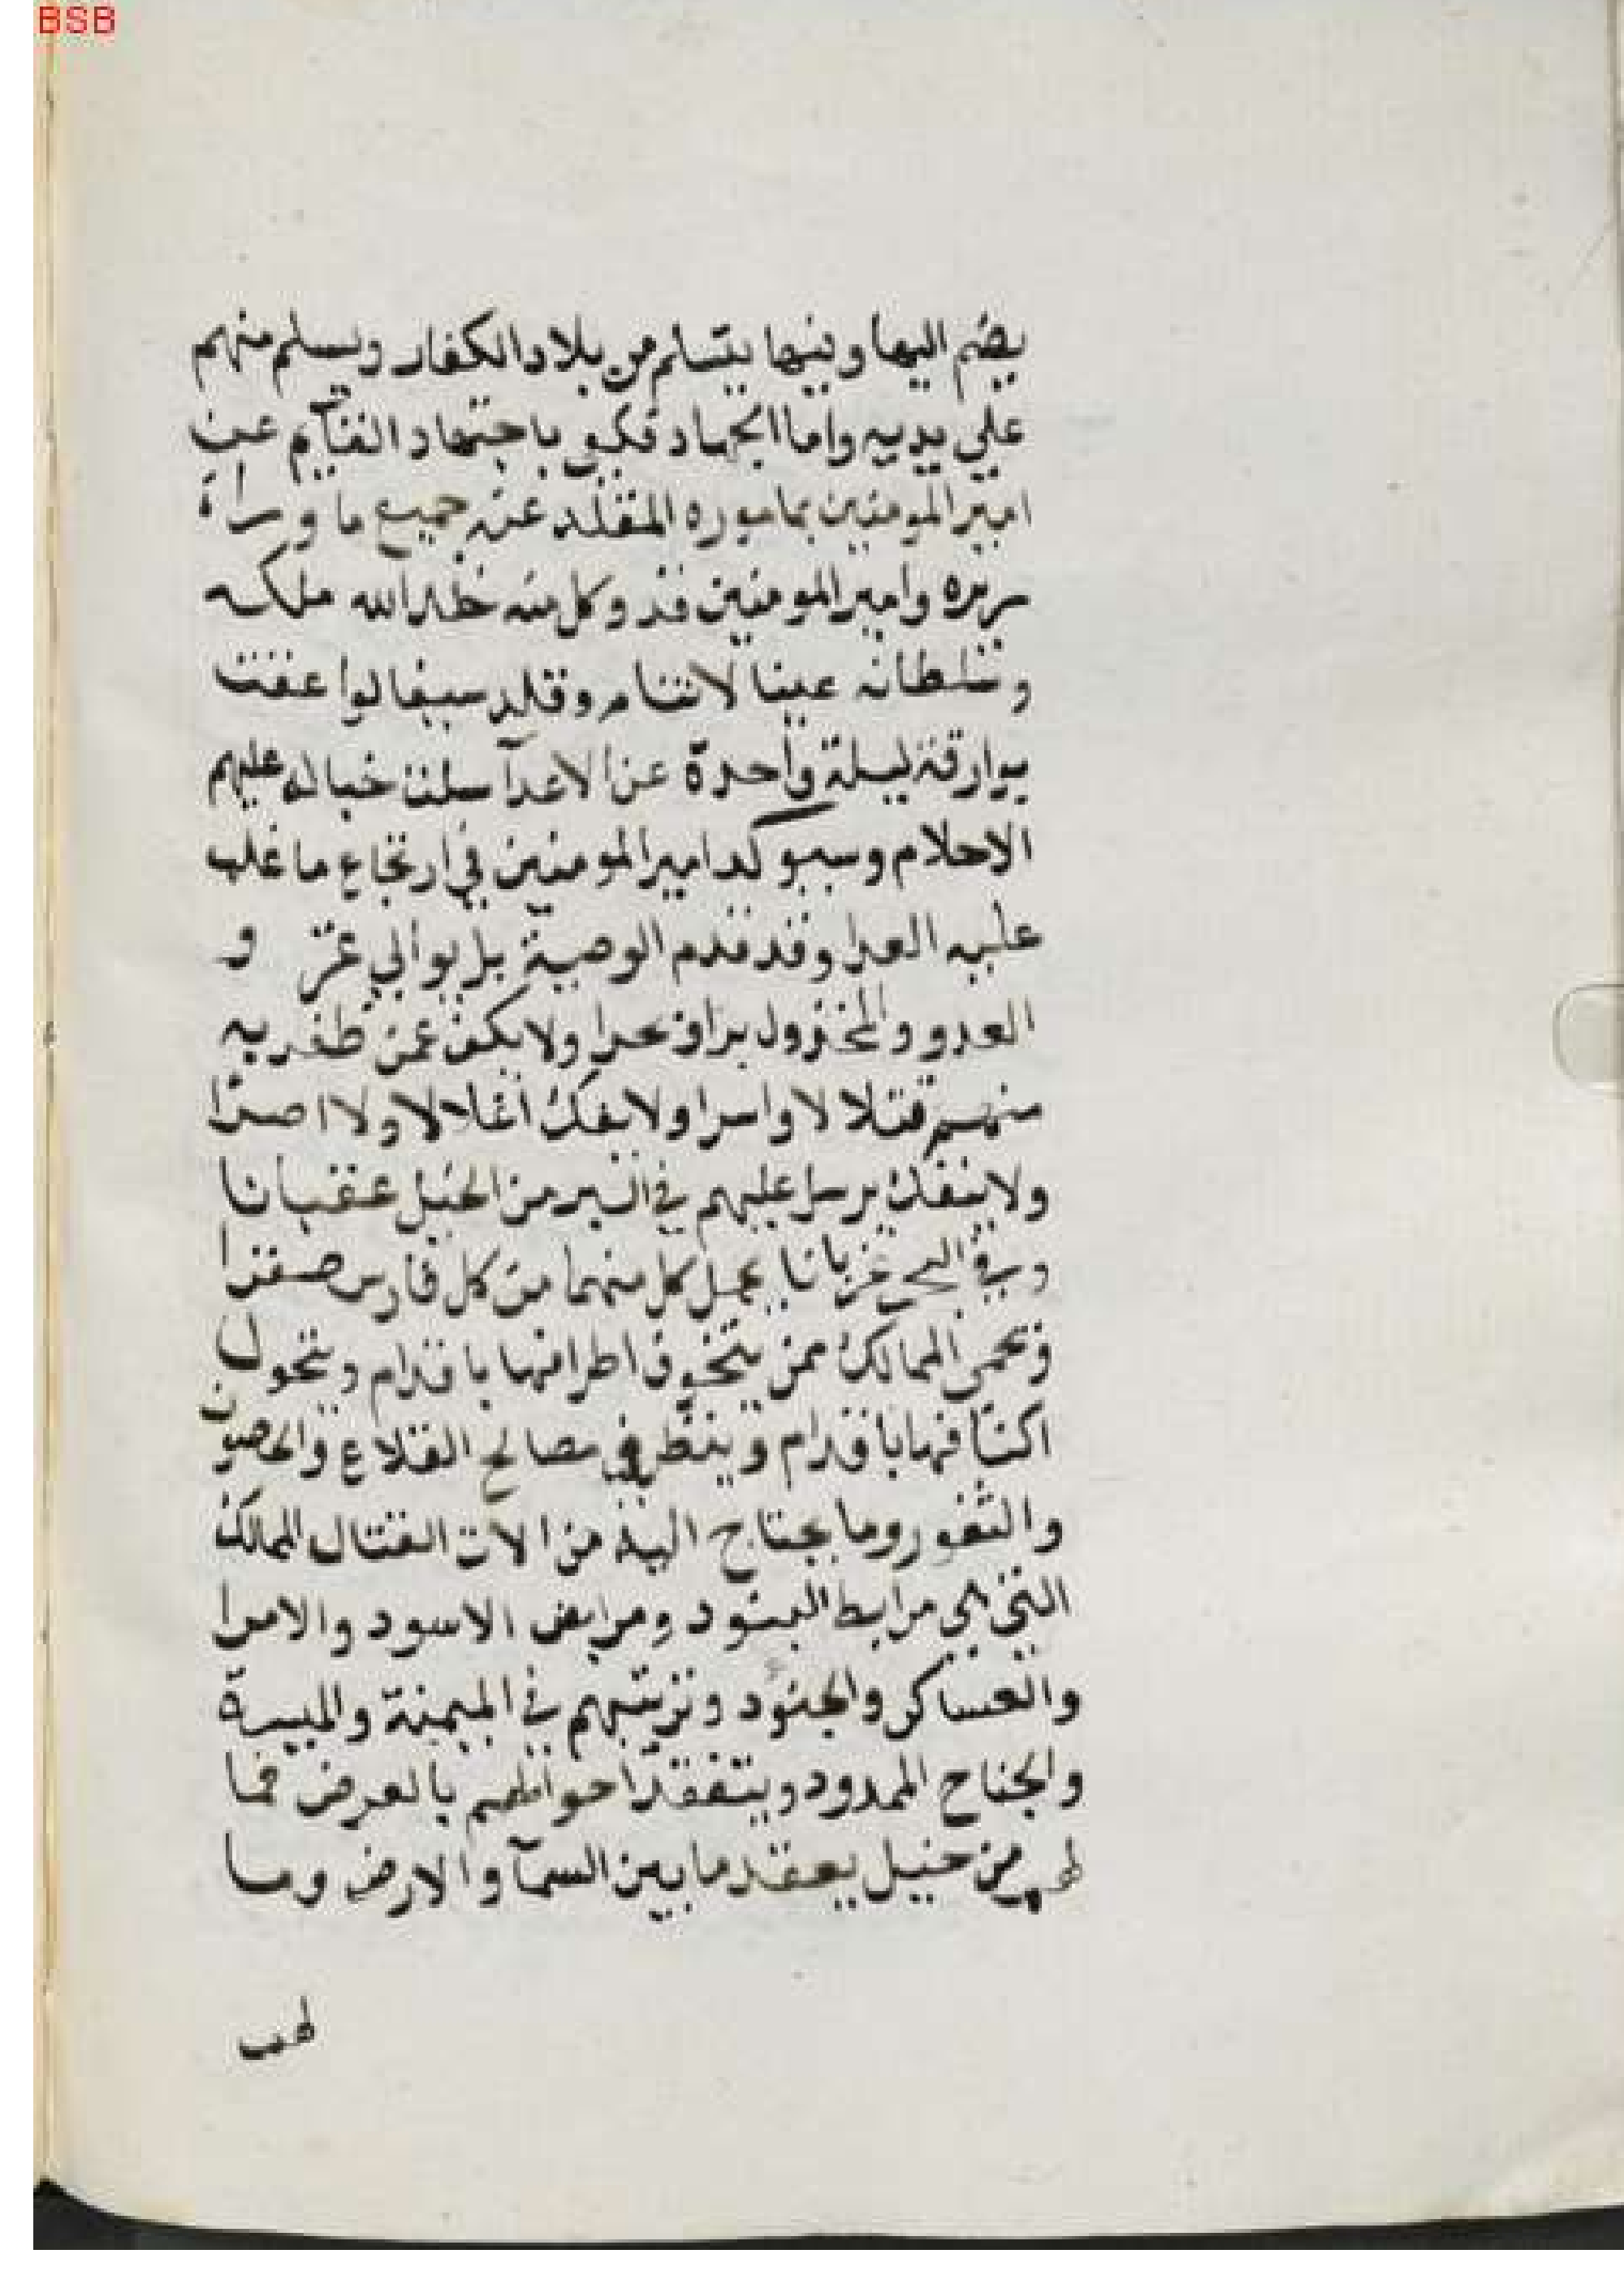 BSB
يضم اليها وبنيها يتسلم من بلاد الكفار ويسلم منهم
علي يديه واما الجهاد فكفي باجتهاد القيآم عن
امير المومنين بماموره المقلد عنه جميع ما ورأ
سريره وامير المومنين قد وكل منه خلد الله ملكه
وسلطانه عينا لا تنام وقلد سيفا لو اغفت
بوارقه ليلة واحدة عن الاعدآ سلت خياله عليهم
الاحلام وسيوكد امير المومنين في ارتجاع ما غلب
عليه العدا وقد قدم الوصية بل يوالي غز و
العدو والمخزول برا وبحرا ولا يكف عمن ظفر به
منهم قتلا لا واسرا ولا يفك اغلالا ولا اصرا
ولا ينفك يرسل عليهم في البر من الخيل عقبانا
وفي البحر غربانا يحمل كل منهما من كل فارس صقرا
ويحمي الممالك ممن يتخوف اطرافها باقدام ويتخول
اكنافها باقدام وينظر في مصالح القلاع والحصون
والثغور وما يحتاج اليه من الات القتال الممالك
التي هي مرابط البنود ومرابض الاسود والامرا
والعساكر والجنود وترتيبهم في الميمنة والميسرة
والجناح الممدود ويتفقد احوالهم بالعرض فما
لهم من خيل يعقد ما بين السمآ والارض وما
لهم